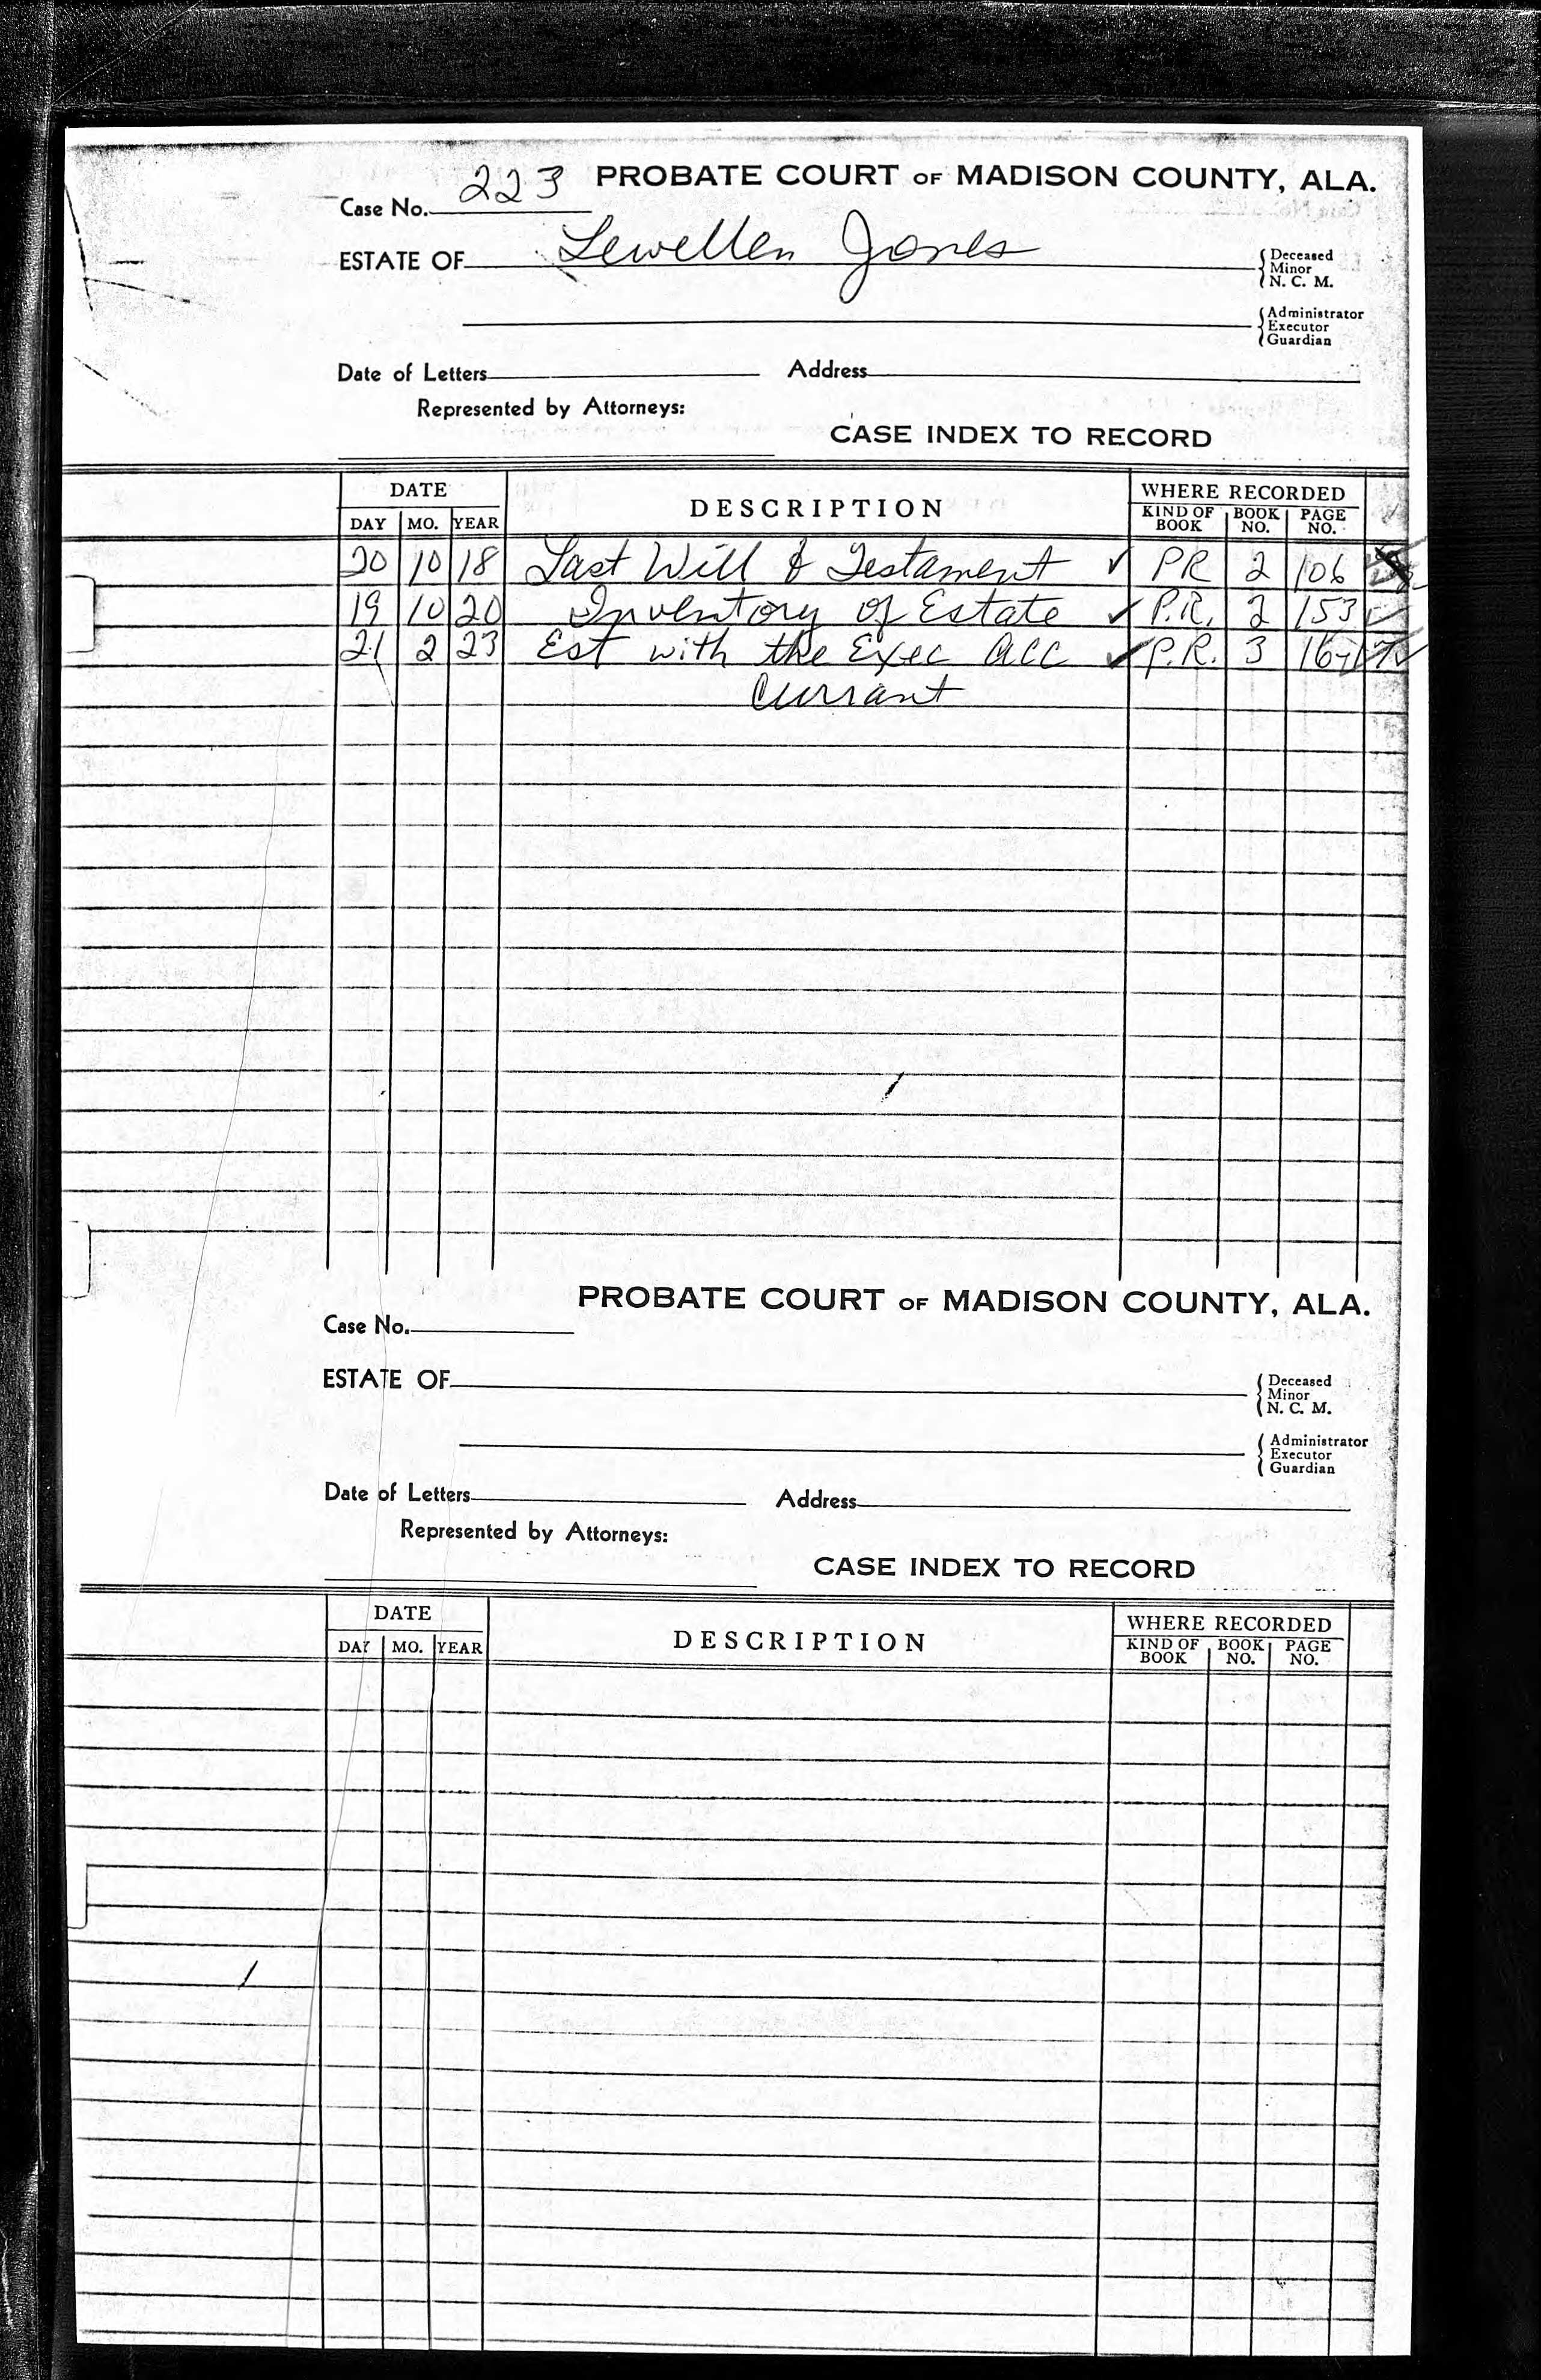 PROBATE COURT OF MADISON COUNTY, ALA.
Case No. 223
ESTATE OF Lewellen Jones
Deceased
Minor
N. C. M.
Administrator
Executor
Guardian
Date of Letters Address
Represented by Attorneys:
CASE INDEX TO RECORD
DATE DESCRIPTION WHERE RECORDED
DAY MO. YEAR KIND OF BOOK BOOK NO. PAGE NO.
20 10 18 Last Will & Testament ✓ PR 2 106
19 10 20 Inventory of Estate ✓ P.R. 2 153 ✓
21 2 23 Est with the Exec Acc ✓ P.R. 3
Currant
PROBATE COURT OF MADISON COUNTY, ALA.
Case No.
ESTATE OF
Deceased
Minor
N. C. M.
Administrator
Executor
Guardian
Date of Letters Address
Represented by Attorneys:
CASE INDEX TO RECORD
DATE DESCRIPTION WHERE RECORDED
DAY MO. YEAR KIND OF BOOK BOOK NO. PAGE NO.